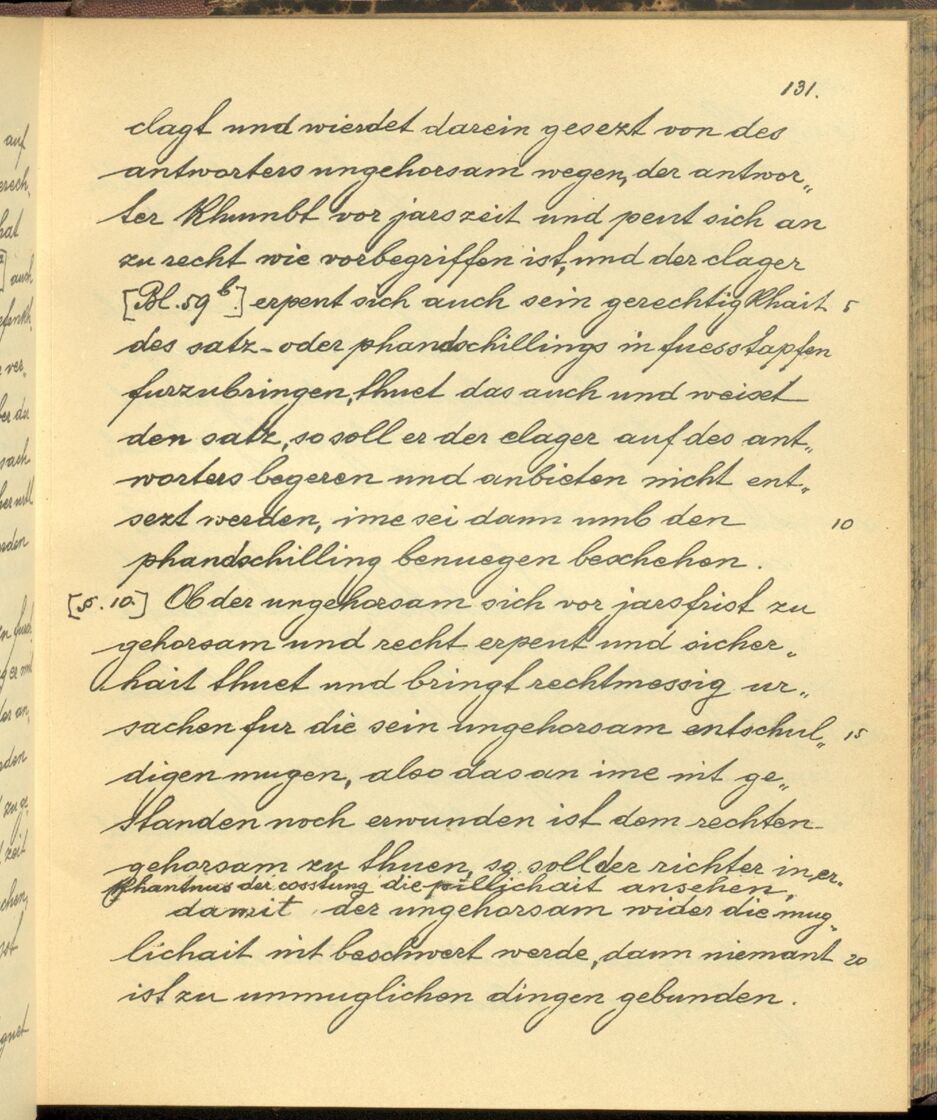 131.
clagt und wierdet darein gesezt von des
antworters ungehorsam wegen, der antwor„
ter khumbt vor jarszeit und peut sich an
zu recht wie vorbegriffen ist, und der clager
[Bl. 59 b.] erpeut sich auch sein gerechtigkhait 5
des satz- oder phandschillings in fuesstapfen
furzubringen, thuet das auch und weiset
den satz, so soll er der clager auf des ant„
worters begeren und anbieten nicht ent„
sezt werden, ime sei dann umb den 10
phandschilling benuegen beschehen.
[§. 10.] Ob der ungehorsam sich vor jarsfrist zu
gehorsam und recht erpeut und sicher„
hait thuet und bringt rechtmessig ur„
sachen fur die sein ungehorsam entschul„ 15
digen mugen, also das an ime nit ge„
standen noch erwunden ist dem rechten
gehorsam zu thuen, so soll der richter in er„
khantnus der cosstung die pillichait ansehen,
damit der ungehorsam wider die mug„
lichait nit beschwert werde, dann niemant 20
ist zu unmuglichen dingen gebunden.